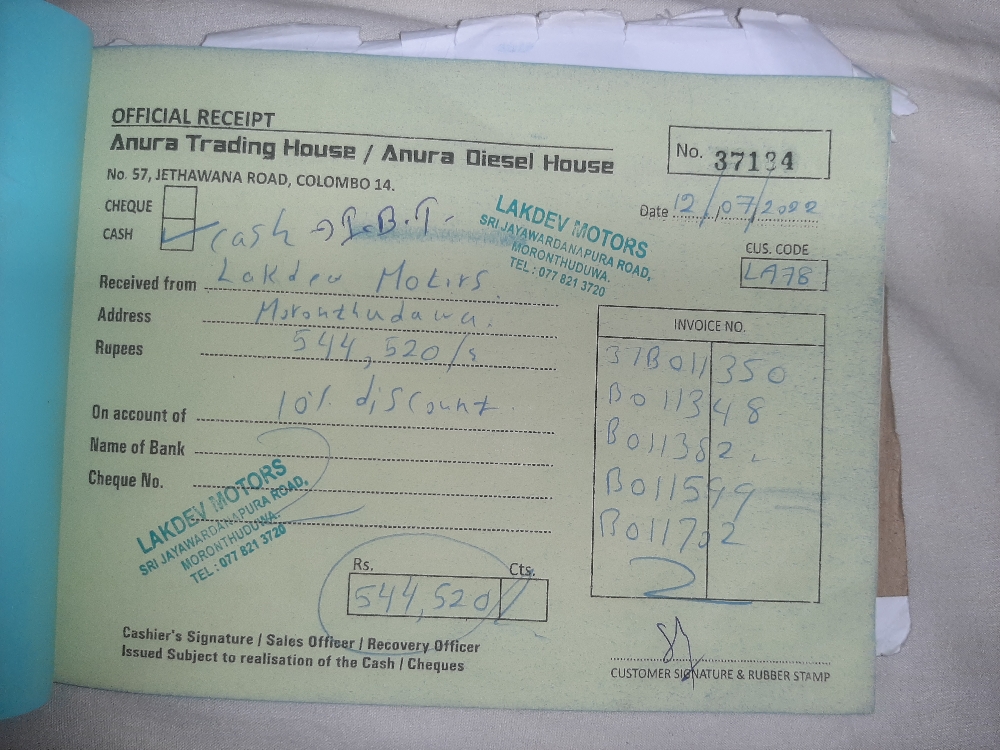 OFFICIAL RECEIPT
Anura Trading House / Anura Diesel House
No. 57, JETHAWANA ROAD, COLOMBO 14.
No. 37134
Date 12/07/2022
CHEQUE
CASH cash → I.B.T.
LAKDEV MOTORS
SRI JAYAWARDANAPURA ROAD,
MORONTHUDUWA.
TEL : 077 821 3720
CUS. CODE
LA78
Received from Lakdev Motors
Address Moronthuduwa.
Rupees 544,520/=
On account of 10% discount
Name of Bank
Cheque No.
INVOICE NO.
37B011350
B011348
B011382
B011599
B011702
LAKDEV MOTORS
SRI JAYAWARDANAPURA ROAD,
MORONTHUDUWA.
TEL : 077 821 3720
Rs. Cts.
544,520/
Cashier's Signature / Sales Officer / Recovery Officer
Issued Subject to realisation of the Cash / Cheques
CUSTOMER SIGNATURE & RUBBER STAMP